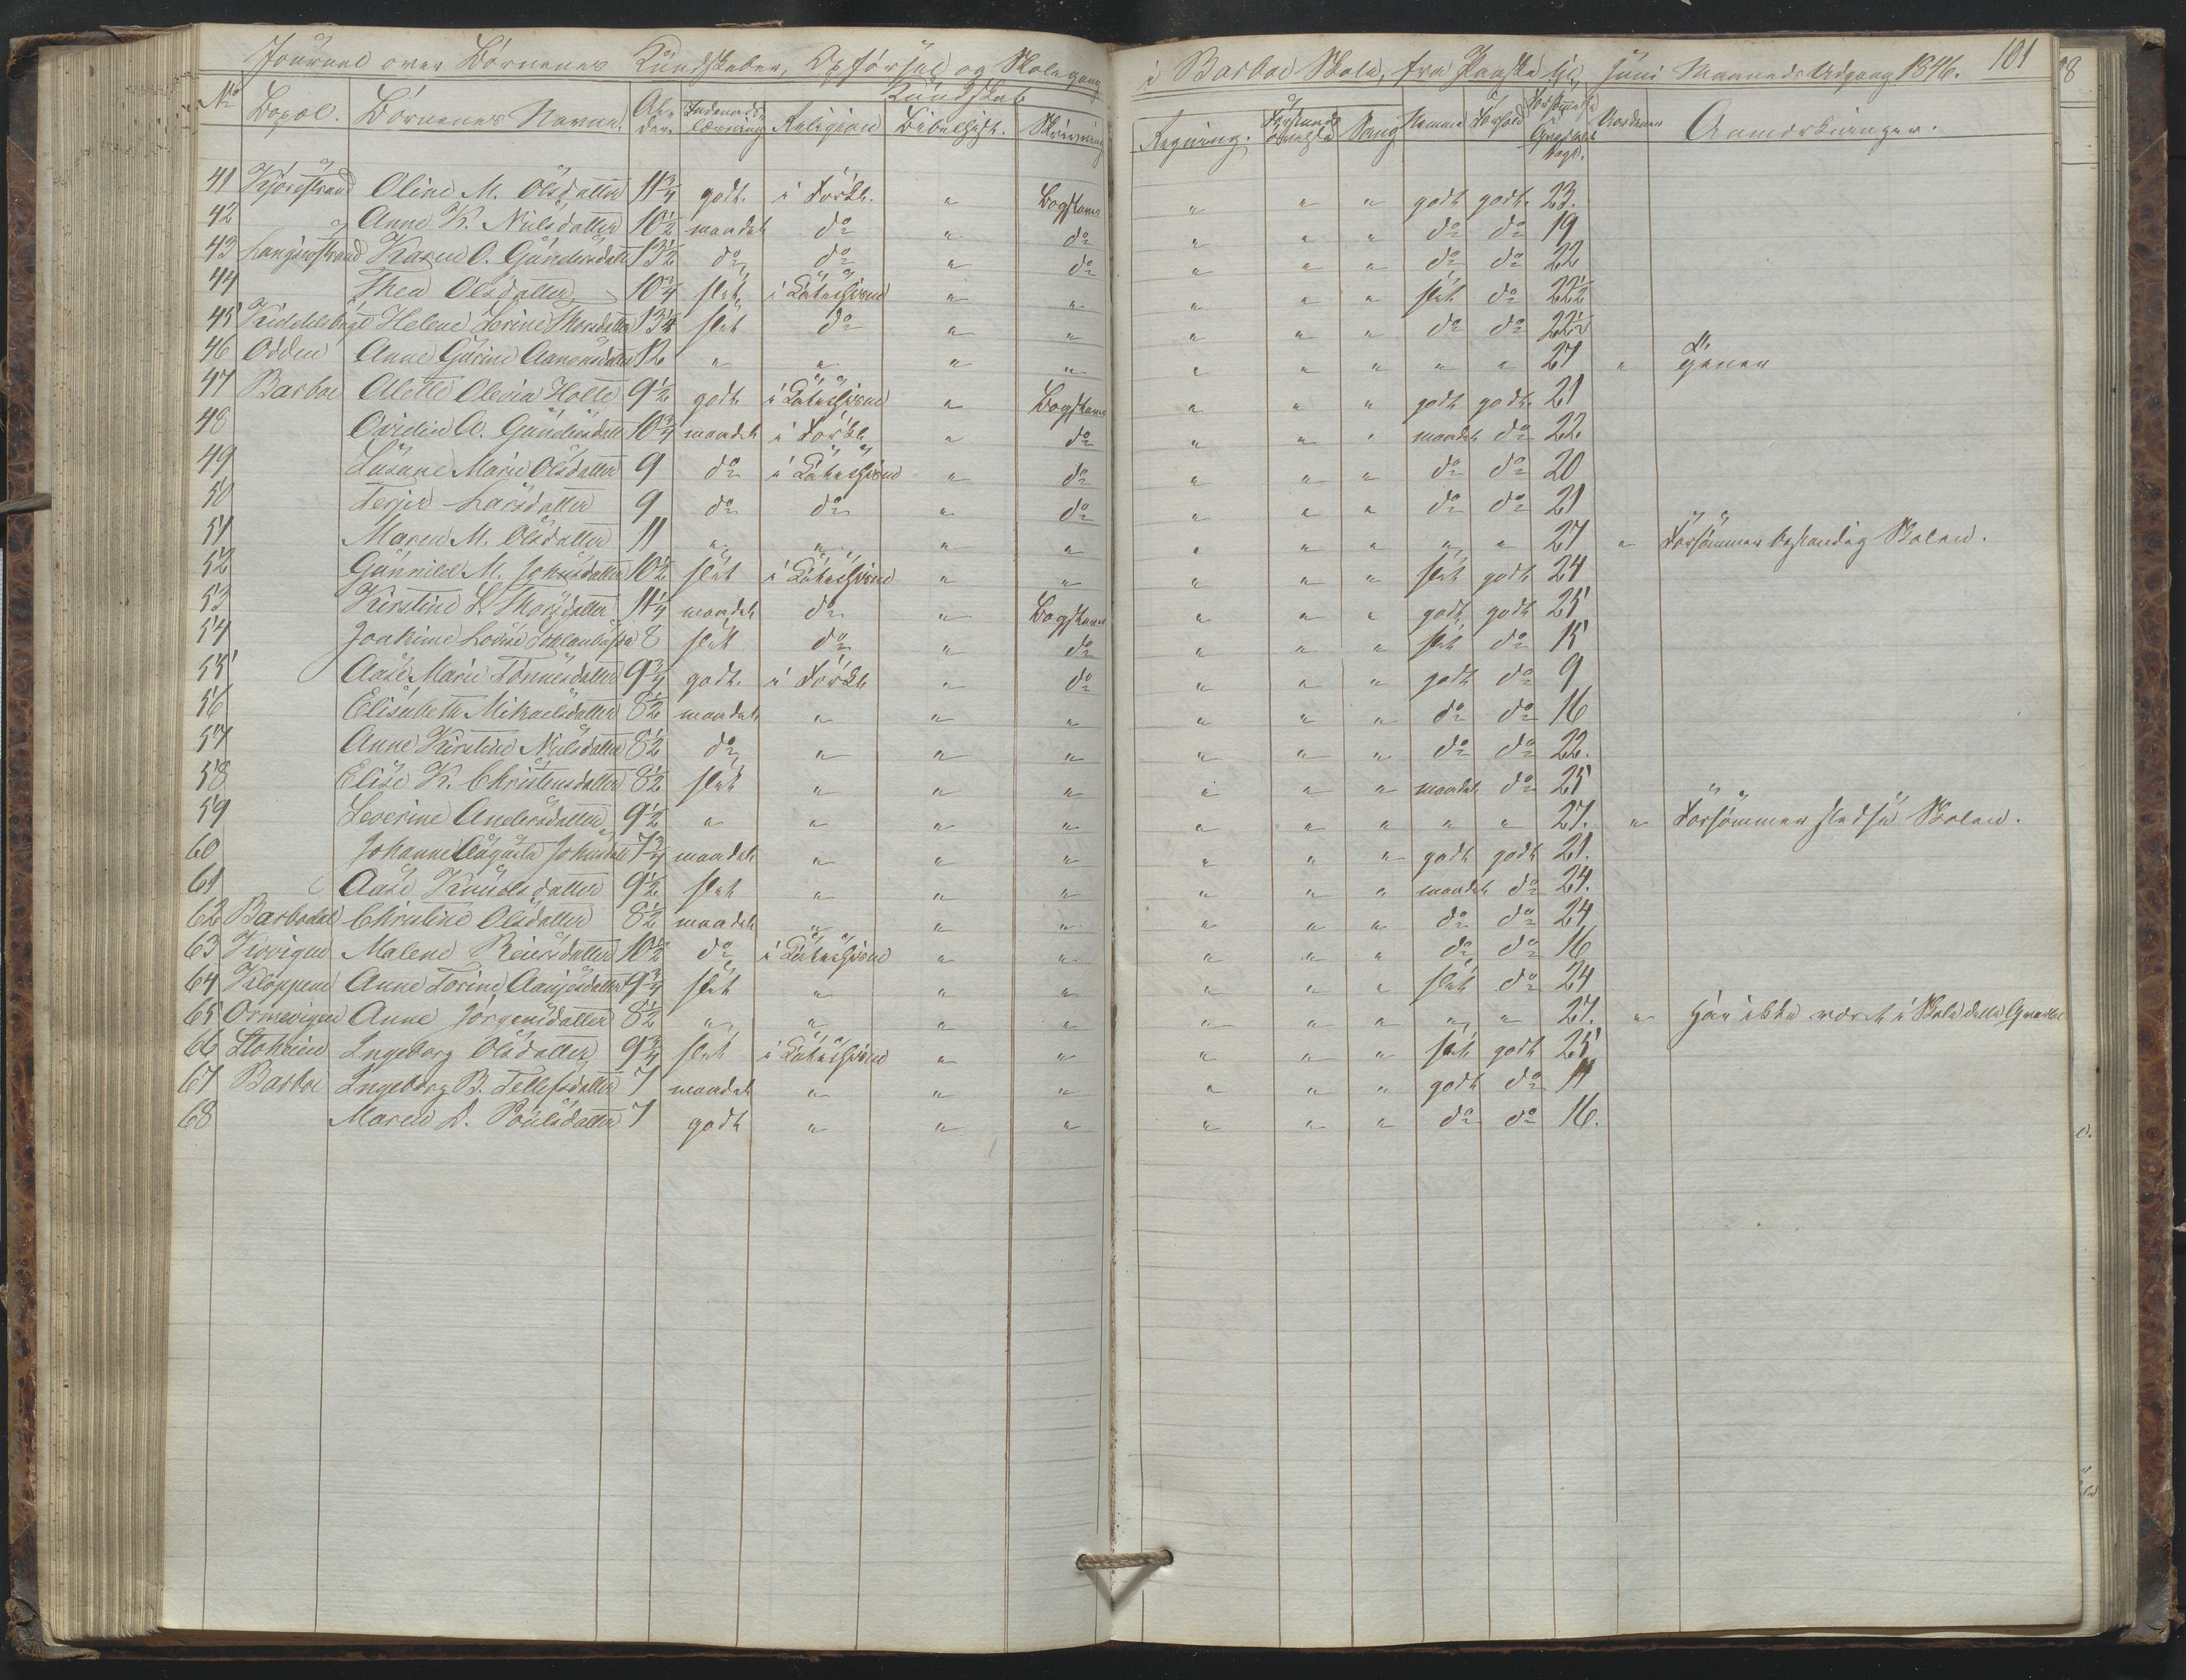 Journal over Børnenes Kundskaber, Opførsel og Skolegang i Barboe Skole, fra Paaske til Juni Maaneds Udgang 1846. 101
Kundskab
No Bopæl. Børnenes Navne. Alder. Indenadslæsning Religion Bibelhist. Skrivning Regning. Forstands øvelse Sang Nemme Forhold Forsømte Dage. Anmærkninger.
41 Oline M. Olsdatter 11 3/4 godt. i Forkl. " Bogstaver " " " godt godt. 23.
42 " Anne K. Nielsdatter 10 1/2 maadel. do " do " " " do do 19
43 Langsævstrand Karen O. Gundersdatt 13 1/2 do do " do " " " do do 22
44 Thea Olsdatter 10 3/4 slet i Katechism " " " " " slet do 22 1/2
45 Helene Terine Thorsdatter 13 1/4 slet do " " " " " do do 22 1/2
46 Odden Anne Gurine Aanonsdatter 12 " " " " " " " " " 27 "
47 Barboe Alette Olevia Holte 9 1/2 godt. i Katechism " Bogstaver " " " godt godt. 21
48 Ovidia A. Gundersdatt 10 3/4 maadel i Forkl. " do " " " maadel do 22
49 Susane Marie Olsdatter 9 do i Katechism " do " " " do do 20
50 Terjie Larsdatter 9 do do " do " " " do do 21
51 Maren M. Olsdatter 11 " " " " " " " " " 27 " Forsømmer bestandig Skolen.
52 Gunnild M. Johnsdatter 10 1/2 slet i Katechism " " " " " slet godt 24
53 Kirstine L. Thorsdatter 11 1/4 maadel do " Bogstaver " " " godt godt 25
54 Joakime Lovise 8 slet do " do " " " slet do 15
55 Aase Marie Tønnesdatter 9 3/4 godt. i Forkl " do " " " godt do 9
56 Elisabeth Mikaelsdatter 8 1/2 maadel " " " " " " do do 16
57 Anne Kirstine Nielsdatter 8 1/2 do " " " " " " do do 22.
58 Elise K. Christensdatter 8 1/2 slet " " " " " " maadel do 25
59 Severine Andersdatter 9 1/2 " " " " " " " " " 27. " Forsømmer stedse Skolen.
60 Johanne Augusta Johnsdatt 7 3/4 maadel " " " " " " godt godt 21.
61 Aase Knudsdatter 9 1/2 slet " " " " " " maadel do 24.
62 Barbodal Christine Olsdatter 8 1/2 maadel " " " " " " do do 24
63 Malene Reiersdatter 10 1/2 do i Katechism " " " " " do do 16
64 Kloppene Anne Torine 9 3/4 slet " " " " " " slet do 24
65 Ormevigen Anne Jørgensdatter 8 1/2 " " " " " " " " " 27. " Har ikke været i Skole dette Qvartal
66 Ingeborg Olsdatter 9 3/4 slet i Katechism " " " " " slet godt 25
67 Barboe Ingeborg B. Tellefsdatter 7 maadel " " " " " " godt do 17
68 Maren D. Poulsdatter 7 godt " " " " " " do do 16.